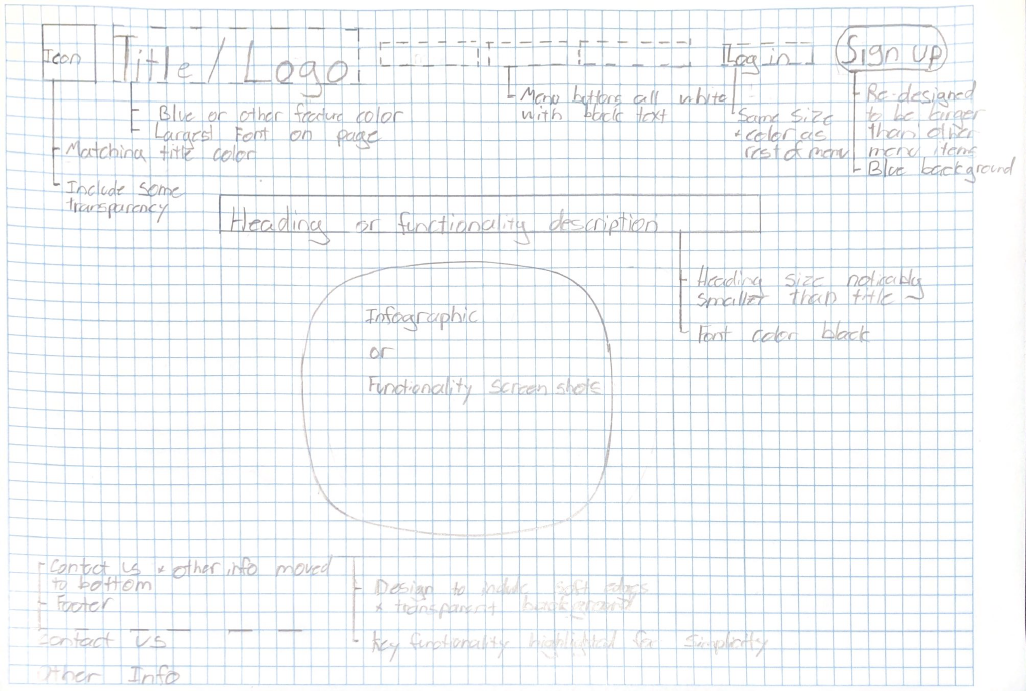 Icon
Title / Logo
Log in
Sign up
Blue or other feature color
Largest Font on page
Matching title color
Include some
transparency
Menu buttons all white
with back text
Same size
+ color as
rest of menu
Re-designed
to be larger
than other
menu items
Blue background
Heading or functionality description
Heading size noticably
smaller than title
Font color black
Infographic
or
Functionality Screen shots
Contact us + other info moved
to bottom
Footer
Contact Us
Other Info
Design to include soft edges
+ transparent background
Key functionality highlighted for simplicity